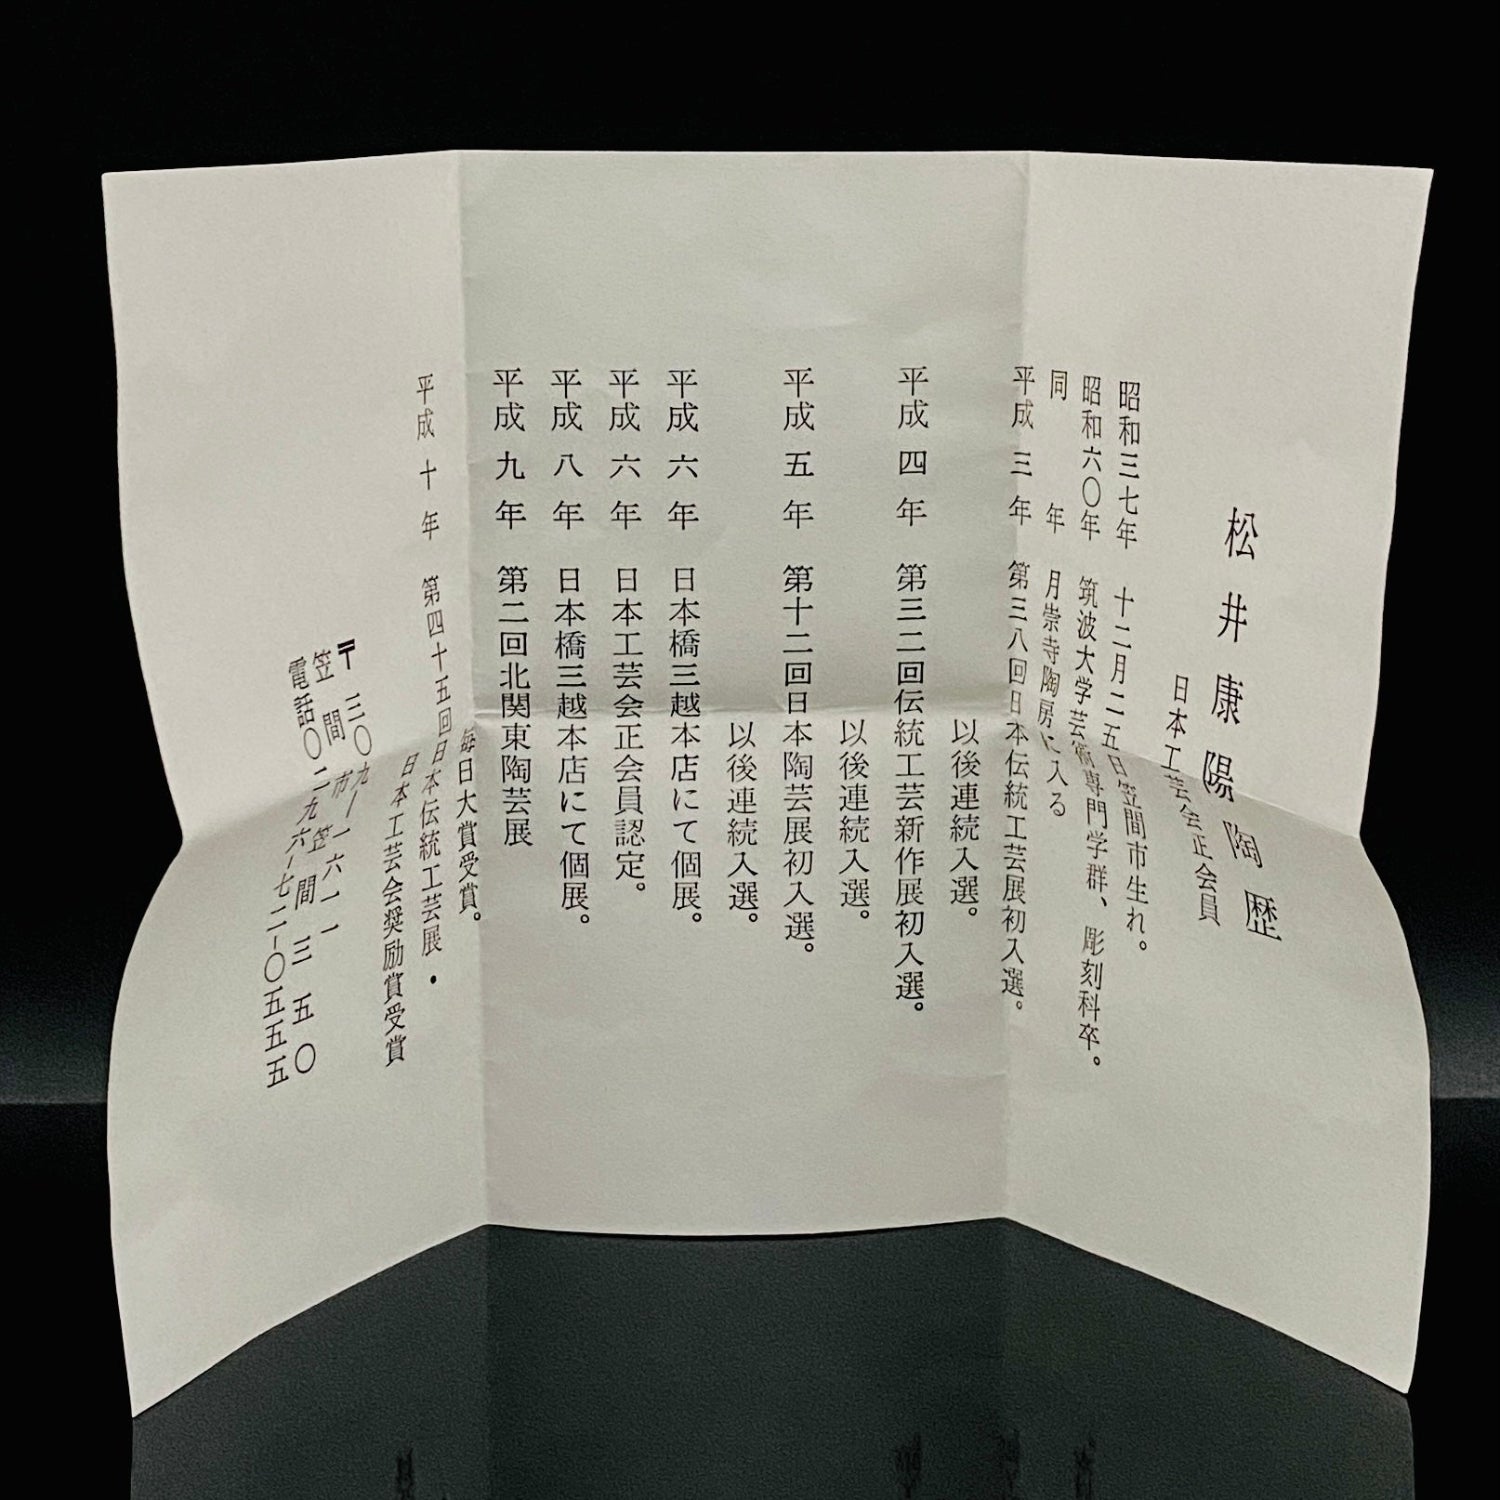 松井康陽陶歴
日本工芸会正会員
昭和三七年 十二月二五日笠間市生れ。
昭和六〇年 筑波大学芸術専門学群、彫刻科卒。
同 年 月崇寺陶房に入る
平成 三 年 第三八回日本伝統工芸展初入選。
以後連続入選。
平成 四 年 第三二回伝統工芸新作展初入選。
以後連続入選。
平成 五 年 第十二回日本陶芸展初入選。
以後連続入選。
平成 六 年 日本橋三越本店にて個展。
平成 六 年 日本工芸会正会員認定。
平成 八 年 日本橋三越本店にて個展。
平成 九 年 第二回北関東陶芸展
毎日大賞受賞。
平成 十 年 第四十五回日本伝統工芸展・
日本工芸会奨励賞受賞
〒三〇九-一六一一
笠間市笠間三五〇
電話〇二九六-七二-〇五五五